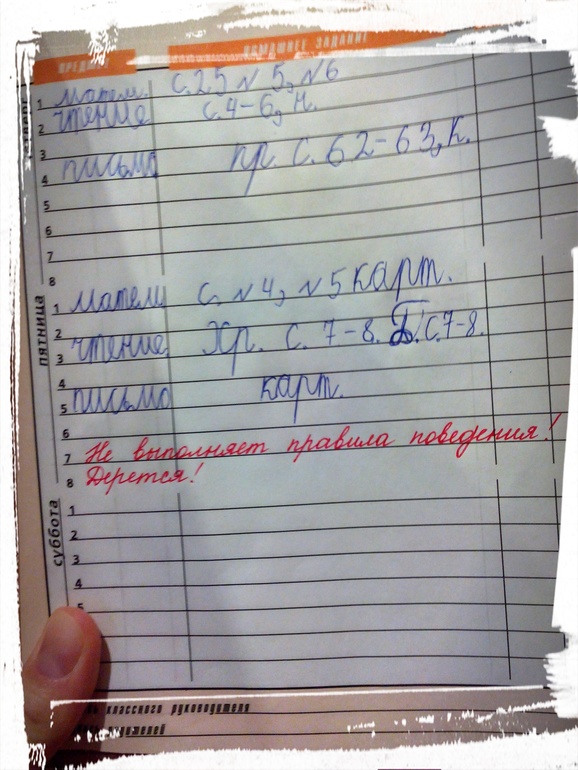 ДОМАШНЕЕ ЗАДАНИЕ
1 матем. с.25 N 5, N6
2 чтение с.4-6, н.
3
4 письмо пр. с. 62-63, к.
5
6
7
8
пятница
1 матем с, N 4, N 5 карт.
2
3 чтение. Хр. с. 7-8. Б. с.7-8.
4
5 письмо карт.
6
7 Не выполняет правила поведения!
8 Дерется!
суббота
1
2
3
4
5
классного руководителя